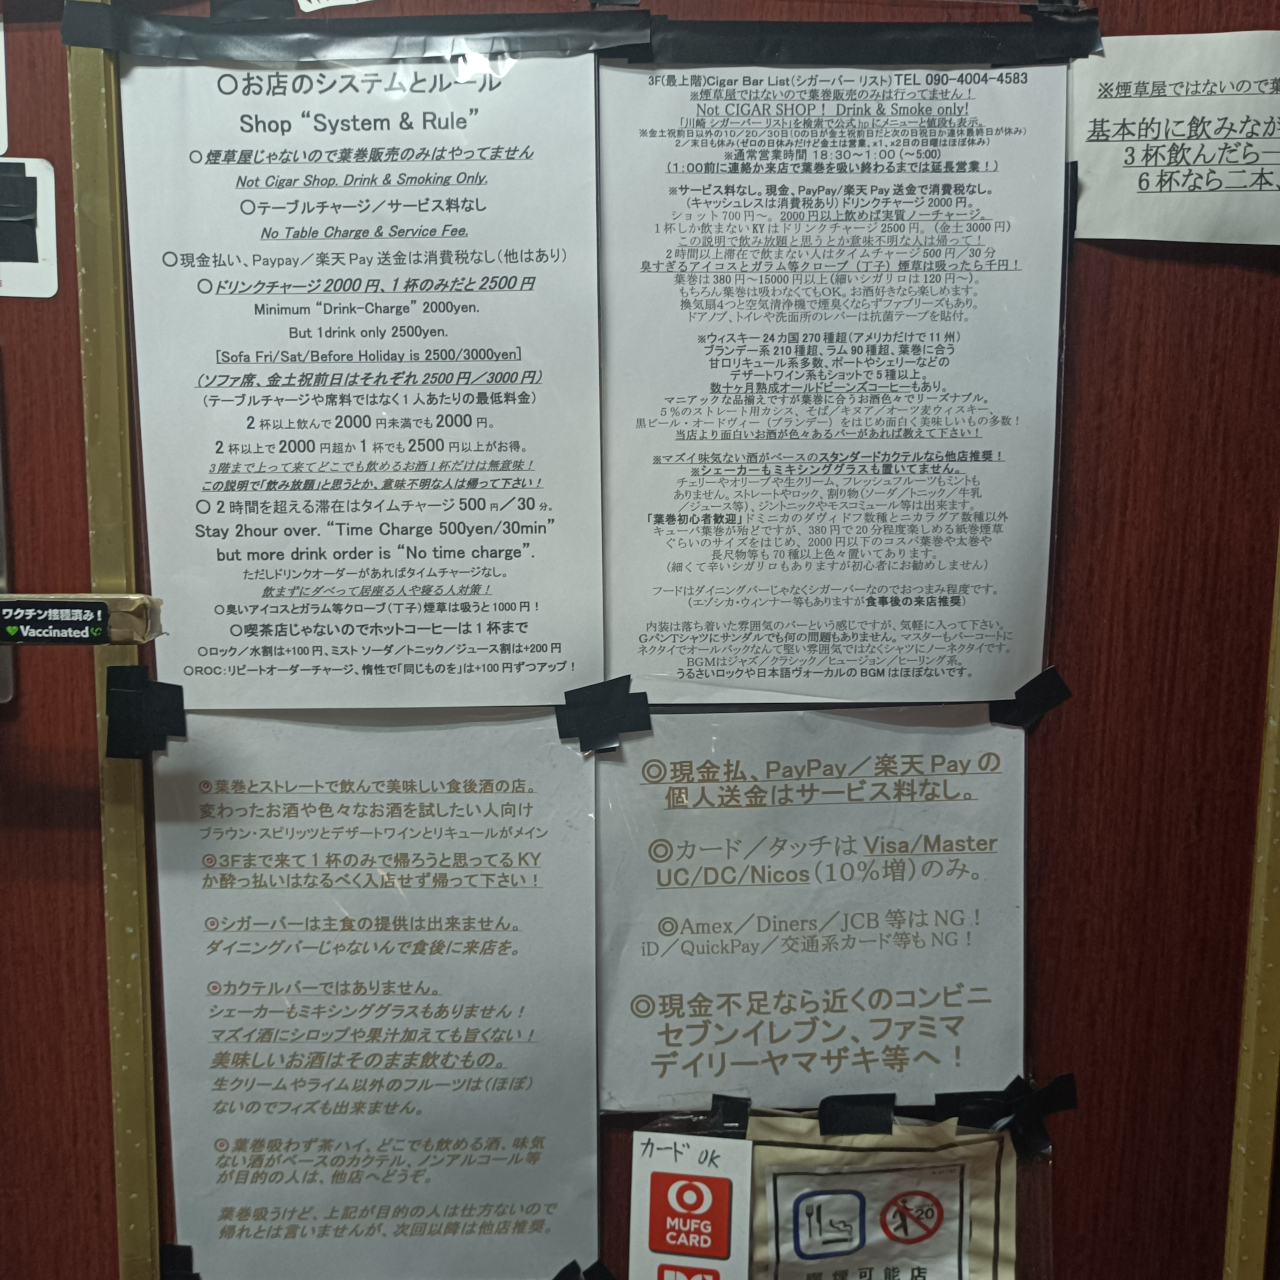 〇お店のシステムとルール
Shop “System & Rule”
〇煙草屋じゃないので葉巻販売のみはやってません
Not Cigar Shop. Drink & Smoking Only.
〇テーブルチャージ／サービス料なし
No Table Charge & Service Fee.
〇現金払い、Paypay／楽天 Pay 送金は消費税なし（他はあり）
〇ドリンクチャージ 2000 円、1 杯のみだと 2500 円
Minimum “Drink-Charge” 2000yen.
But 1drink only 2500yen.
[Sofa Fri/Sat/Before Holiday is 2500/3000yen]
（ソファ席、金土祝前日はそれぞれ 2500 円／3000 円）
（テーブルチャージや席料ではなく 1 人あたりの最低料金）
2 杯以上飲んで 2000 円未満でも 2000 円。
2 杯以上で 2000 円超か 1 杯でも 2500 円以上がお得。
3 階まで上って来てどこでも飲めるお酒 1 杯だけは無意味！
この説明で「飲み放題」と思うとか、意味不明な人は帰って下さい！
〇 2 時間を超える滞在はタイムチャージ 500 円／30 分。
Stay 2hour over. “Time Charge 500yen/30min”
but more drink order is “No time charge”.
ただしドリンクオーダーがあればタイムチャージなし。
飲まずにダベって居座る人や寝る人対策！
〇臭いアイコスとガラム等クローブ（丁子）煙草は吸うと 1000 円！
〇喫茶店じゃないのでホットコーヒーは 1 杯まで
〇ロック／水割は+100 円、ミスト ソーダ／トニック／ジュース割は+200 円
〇ROC：リピートオーダーチャージ、惰性で「同じものを」は+100 円ずつアップ！
3F(最上階)Cigar Bar List(シガーバー リスト) TEL 090-4004-4583
※煙草屋ではないので葉巻販売のみは行ってません！
Not CIGAR SHOP！ Drink & Smoke only!
「川崎 シガーバー リスト」を検索で公式 hp にメニューと値段も表示。
※金土祝前日以外の10／20／30日（0の日が金土祝前日だと次の日祝日か連休最終日が休み）
2／末日も休み（ゼロの日休みだけど金土は営業、x1、x2日の日曜はほぼ休み）
※通常営業時間 18:30～1:00 （～5:00）
（1:00前に連絡か来店で葉巻を吸い終わるまでは延長営業！）
※サービス料なし。現金、PayPay/楽天 Pay 送金で消費税なし。
（キャッシュレスは消費税あり）ドリンクチャージ 2000 円。
ショット 700 円～。2000 円以上飲めば実質ノーチャージ。
1 杯しか飲まない KY はドリンクチャージ 2500 円。（金土 3000 円）
この説明で飲み放題と思うとか意味不明な人は帰って！
2 時間以上滞在で飲まない人はタイムチャージ 500 円／30 分
臭すぎるアイコスとガラム等クローブ（丁子）煙草は吸ったら千円！
葉巻は 380 円～15000 円以上（細いシガリロは 120 円～）。
もちろん葉巻は吸わなくてもOK。お酒好きなら楽しめます。
換気扇4つと空気清浄機で煙臭くならずファブリーズもあり。
ドアノブ、トイレや洗面所のレバーは抗菌テープを貼付。
※ウィスキー 24 カ国 270 種超（アメリカだけで 11 州）
ブランデー系 210 種超、ラム 90 種超、葉巻に合う
甘口リキュール系多数、ポートやシェリーなどの
デザートワイン系もショットで 5 種以上。
数十ヶ月熟成オールドビーンズコーヒーもあり。
マニアックな品揃えですが葉巻に合うお酒色々でリーズナブル。
5％のストレート用カシス、そば／キヌア／オーツ麦ウィスキー、
黒ビール・オードヴィー（ブランデー）をはじめ面白く美味しいもの多数！
当店より面白いお酒が色々あるバーがあれば教えて下さい！
※マズイ味気ない酒がベースのスタンダードカクテルなら他店推奨！
※シェーカーもミキシンググラスも置いてません。
チェリーやオリーブや生クリーム、フレッシュフルーツもミントも
ありません。ストレートやロック、割り物（ソーダ／トニック／牛乳
／ジュース等）、ジントニックやモスコミュール等は出来ます。
「葉巻初心者歓迎」ドミニカのダヴィドフ数種とニカラグア数種以外
キューバ葉巻が殆どですが、380 円で 20 分程度楽しめる紙巻煙草
ぐらいのサイズをはじめ、2000 円以下のコスパ葉巻や太巻や
長尺物等も 70 種以上色々置いてあります。
（細くて辛いシガリロもありますが初心者にお勧めしません）
フードはダイニングバーじゃなくシガーバーなのでおつまみ程度です。
（エゾシカ・ウィンナー等もありますが食事後の来店推奨）
内装は落ち着いた雰囲気のバーという感じですが、気軽に入って下さい。
GパンTシャツにサンダルでも何の問題もありません。マスターもバーコートに
ネクタイでオールバックなんて堅い雰囲気ではなくシャツにノーネクタイです。
BGMはジャズ／クラシック／ヒュージョン／ヒーリング系。
うるさいロックや日本語ヴォーカルの BGM はほぼないです。
※煙草屋ではないので葉
基本的に飲みなが
3 杯飲んだら一
6 杯なら二本、
ワクチン接種済み！
Vaccinated
◎葉巻とストレートで飲んで美味しい食後酒の店。
変わったお酒や色々なお酒を試したい人向け
ブラウン・スピリッツとデザートワインとリキュールがメイン
◎3Fまで来て 1 杯のみで帰ろうと思ってる KY
か酔っ払いはなるべく入店せず帰って下さい！
◎シガーバーは主食の提供は出来ません。
ダイニングバーじゃないんで食後に来店を。
◎カクテルバーではありません。
シェーカーもミキシンググラスもありません！
マズイ酒にシロップや果汁加えても旨くない！
美味しいお酒はそのまま飲むもの。
生クリームやライム以外のフルーツは（ほぼ）
ないのでフィズも出来ません。
◎葉巻吸わず茶ハイ、どこでも飲める酒、味気
ない酒がベースのカクテル、ノンアルコール等
が目的の人は、他店へどうぞ。
葉巻吸うけど、上記が目的の人は仕方ないので
帰れとは言いませんが、次回以降は他店推奨。
◎現金払、PayPay／楽天 Pay の
個人送金はサービス料なし。
◎カード／タッチは Visa/Master
UC/DC/Nicos（10％増）のみ。
◎Amex／Diners／JCB 等は NG！
iD／QuickPay／交通系カード等も NG！
◎現金不足なら近くのコンビニ
セブンイレブン、ファミマ
デイリーヤマザキ等へ！
カード OK
MUFG
CARD
20
喫煙可能店